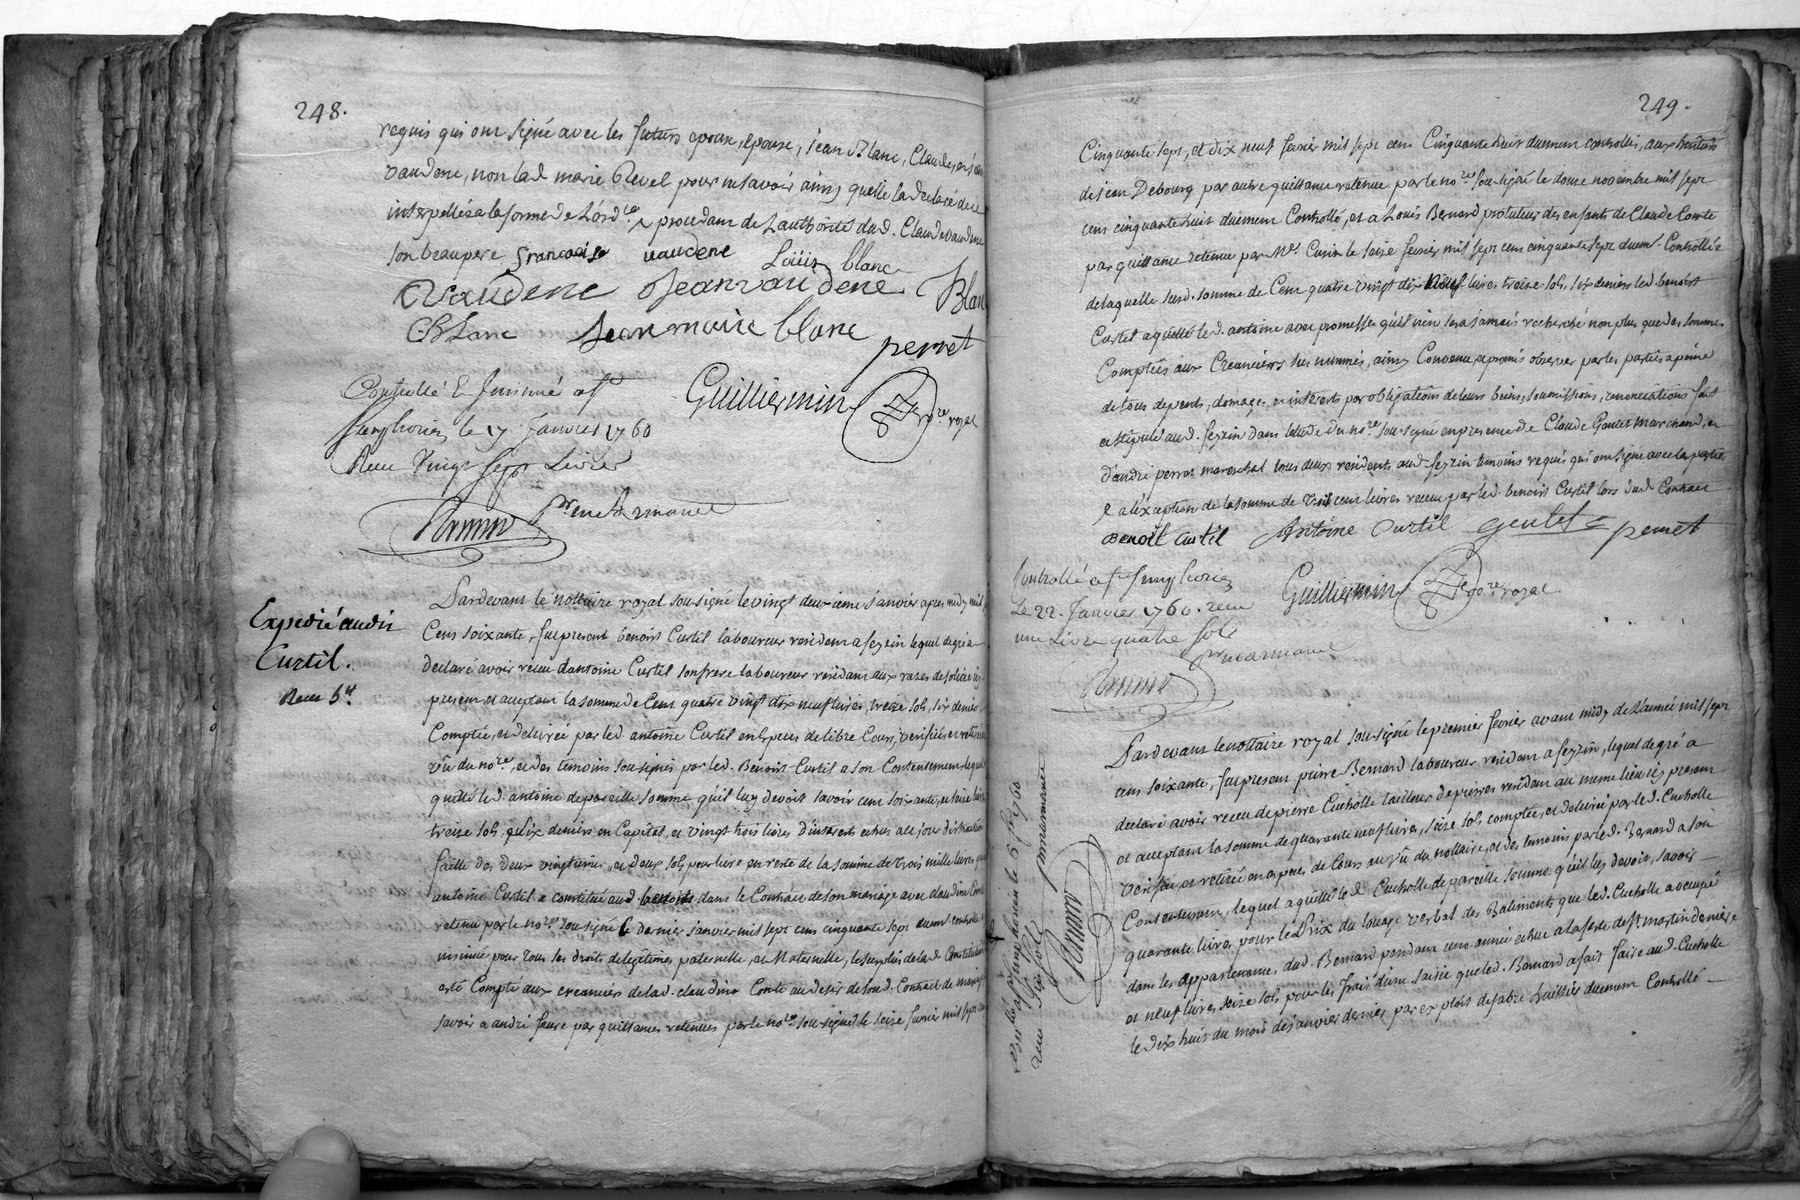 248.
requis qui ont signé avec les futurs epoux, epouse, jean Blanc, Claude, et jean
vaudene, non lad marie Revel pour ne savoir ainsy quelle la declaré de ce
interpellée a la forme de Lord.ce procedant de Lauthorité dud. Claude vaudene
son beaupere françoise vaucene Loüis blanc
Vaudene Jean vaudene Blan
C. Blanc Jean marie blanc
perret
Controllé & Insinué a St Guilliermin no.re royal
Simphorien le 17 Janvier 1760
Receu Vingt Sept Livres
Expedié audit
Curtil.
Receu 5tt
Pardevant le nottaire royal sousigné le vingt deuxieme janvier apres midy mil sept
Cens soixante, fut present benoist Curtil laboureur resident a feyzin lequel de gré a
declaré avoir receu d'antoine Curtil son frere laboureur residant aux razes de solaize icy
present et acceptant la somme de Cent quatre vingt dix neuf livres, treize sols, six deniers
Comptée, et delivrée par led. antoine Curtil en Especes de libre Cours, verifiée, et retirée au
vû du no.re, et des temoins sousignés par led. Benoist Curtil a son Contentement, lequel
quitte led. antoine de pareille somme qu'il luy devoit savoir cent soixante, et seize livres
treize sols, six deniers en Capital, et vingt trois livres d'interests echus a ce jour distraction
faitte des deux vingtiemes, et deux sols pour livre en reste de la somme de trois mille livres que
antoine Curtil a constitué aud benoist dans le Contract de son mariage avec claudine Comte
retenu par le no.re sousigné le dernier janvier mil sept cens cinquante sept duemt controllé et
insinué pour tous ses droits de legitimes paternelle, et Maternelle, le surplus de lad. Constitution
esté Compté aux creanciers de lad. claudine Comte au desir de soud. Contract de mariage
savoir a andré faure par quittances retenues par le no.re sousigné le seize fevrier mil sept cens
249.
Cinquante sept, et dix neuf fevrier mil sept cens Cinquante huit duement controllés, aux heritiers
de jean Debourg par autre quittance retenue par le no.re sousigné le douze novembre mil sept
cens cinquante huit duement Controllé, et a Loüis Bernard protuteur des enfants de Claude Comte
par quittance retenue par Me. Curin le seize fevrier mil sept cens cinquante sept duemt. Controllée
de laquelle susd. somme de Cent quatre vingt dix Neuf livres treize sols, six deniers led. benoist
Curtil a quitté led. antoine avec promesse qu'il n'en sera jamais recherché non plus que des sommes
Comptées aux Creanciers sus nommés, ainsy Convenu, et promis observer par les parties a peine
de tous depents, domages, et interests par obligations de leurs biens, soumissions, renonciations fait
et stipulé aud. feyzin dans letude du no.re sousigné en presence de Claude Goutet marchand, et
d'andré perret mareschal tous deux residents aud. feyzin temoins requis qui ont signé avec les parties
& a l'exception de la somme de trois cent livres receue par led. benoist Curtil lors dud Contract
Benoît Curtil Antoine Curtil Perret
Controllé a St Simphorien Guilliermin no.re royal
Le 22. Janvier 1760. receu
une Livre quatre sols
Pardevant le nottaire royal sousigné le premier fevrier avant midy de L'année mil sept
cens soixante, fut present pierre Bernard laboureur residant a feyzin, lequel de gré a
declaré avoir receu de pierre Cucholle tailleur de pierres residant au meme lieu icy present
et acceptant la somme de quarante neuf livres, seize sols comptée, et delivrée par led. Cucholle
verifiée, et retirée en especes de Cours au vû du nottaire, et des temoins par led. Bernard a son
Contentement, lequel a quitté led Cucholle de pareille somme qu'il luy devoit, savoir
quarante livres pour le Prix du loüage verbal des Batiments que led. Cucholle a occupés
dans les appartenances dud. Bernard pendant une année echue a la feste de St. martin derniere
et neuf livres, seize sols pour les frais d'une saisie que led. Bernard a fait faire aud. Cucholle
le dix huit du mois de janvier dernier par exploit de fabre huissier duement Controllé
Controllé a St Simphorien le 5 fev. 1760
receu six sols